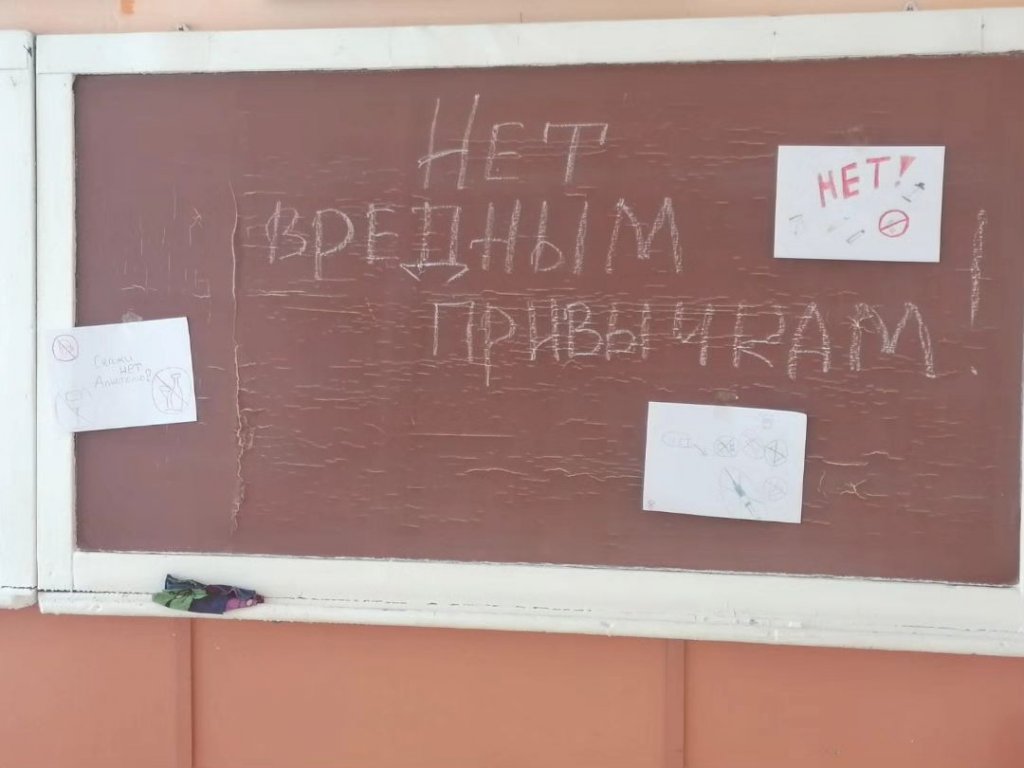 НЕТ
ВРЕДНЫМ
ПРИВЫЧКАМ!
НЕТ!
Скажи
НЕТ
Алкоголю!
НЕТ